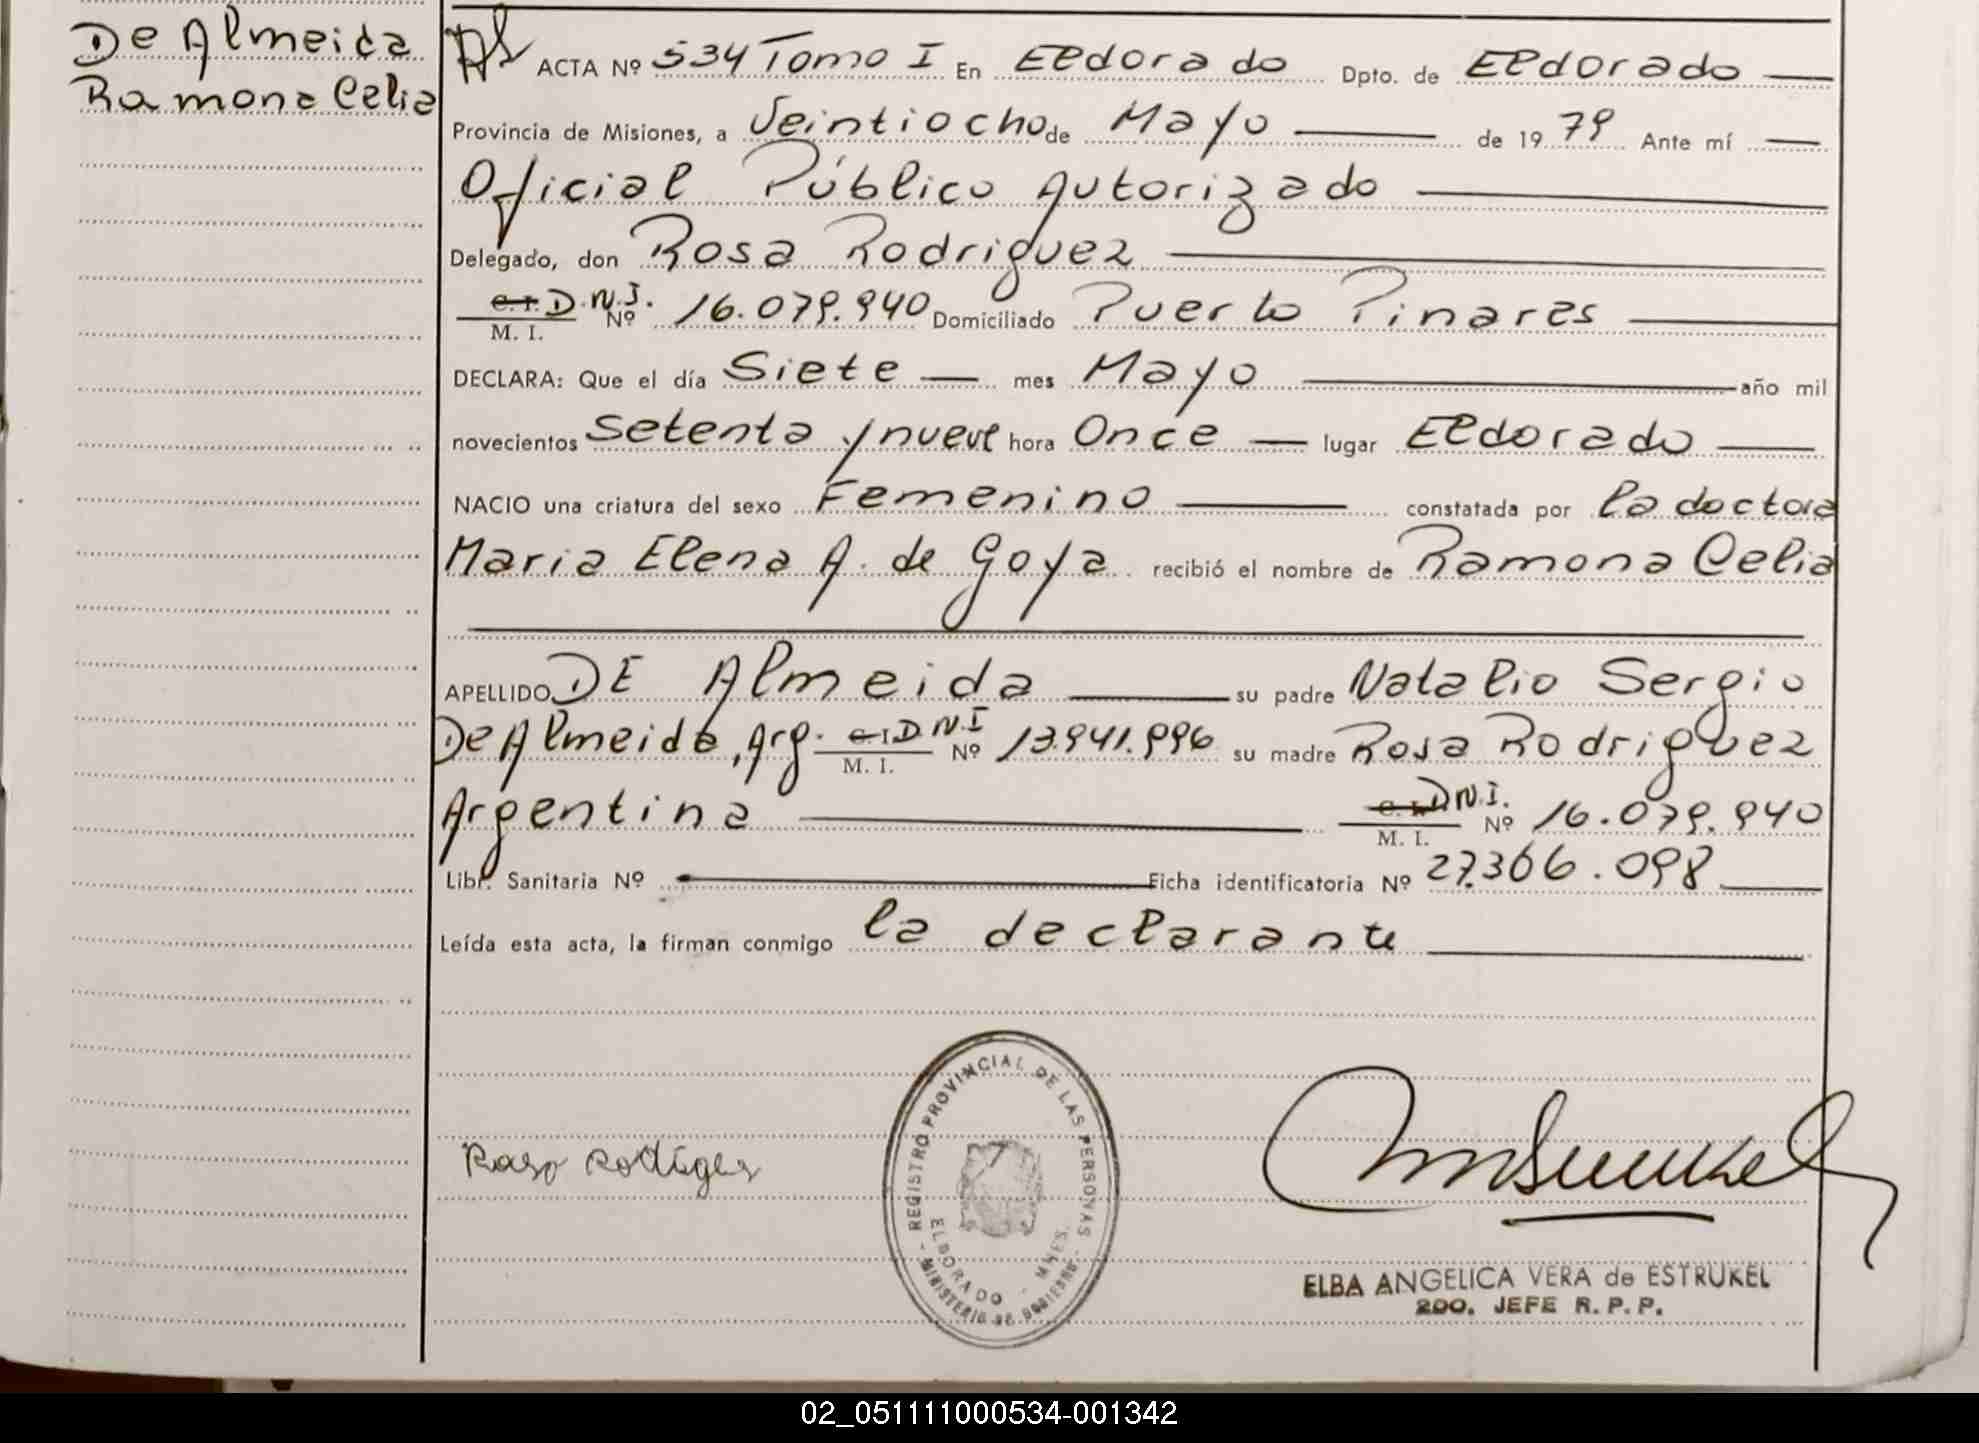 De Almeida
Ramona Celia
ACTA Nº 534 Tomo I En Eldorado Dpto. de Eldorado
Provincia de Misiones, a Veintiocho de Mayo de 1979 Ante mí
Oficial Público Autorizado
Delegado, don Rosa Rodriguez
C.I. D.N.I. M. I. Nº 16.079.940 Domiciliado Puerto Pinares
DECLARA: Que el día Siete mes Mayo año mil
novecientos setenta y nueve hora Once lugar Eldorado
NACIO una criatura del sexo Femenino constatada por la doctora
Maria Elena A. de Goya recibió el nombre de Ramona Celia
APELLIDO DE Almeida su padre Natalio Sergio
De Almeida, Arg. C.I. D.N.I M. I. Nº 13.941.996 su madre Rosa Rodriguez
Argentina C.I. D.N.I. M. I. Nº 16.079.940
Libr. Sanitaria Nº Ficha identificatoria Nº 27.306.098
Leída esta acta, la firman conmigo la declarante
REGISTRO PROVINCIAL DE LAS PERSONAS
ELDORADO - MNES.
- MINISTERIO DE GOBIERNO -
ELBA ANGELICA VERA de ESTRUKEL
2DO. JEFE R. P. P.
02_051111000534-001342